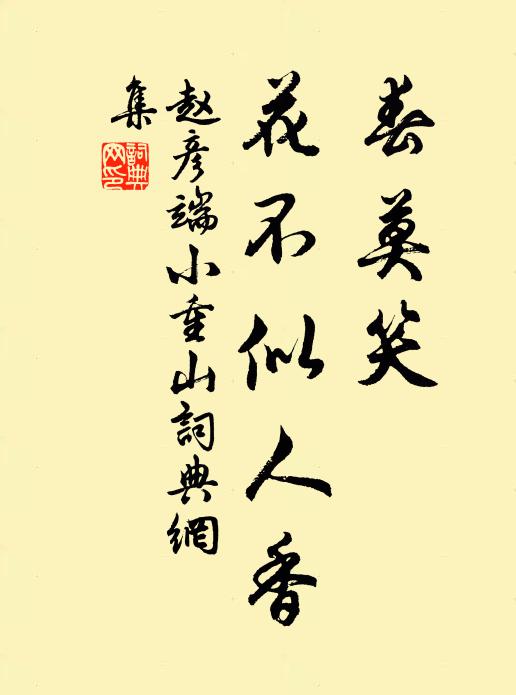 春莫笑
花不似人香
赵彦端小重山詞典網
集
詞典网印